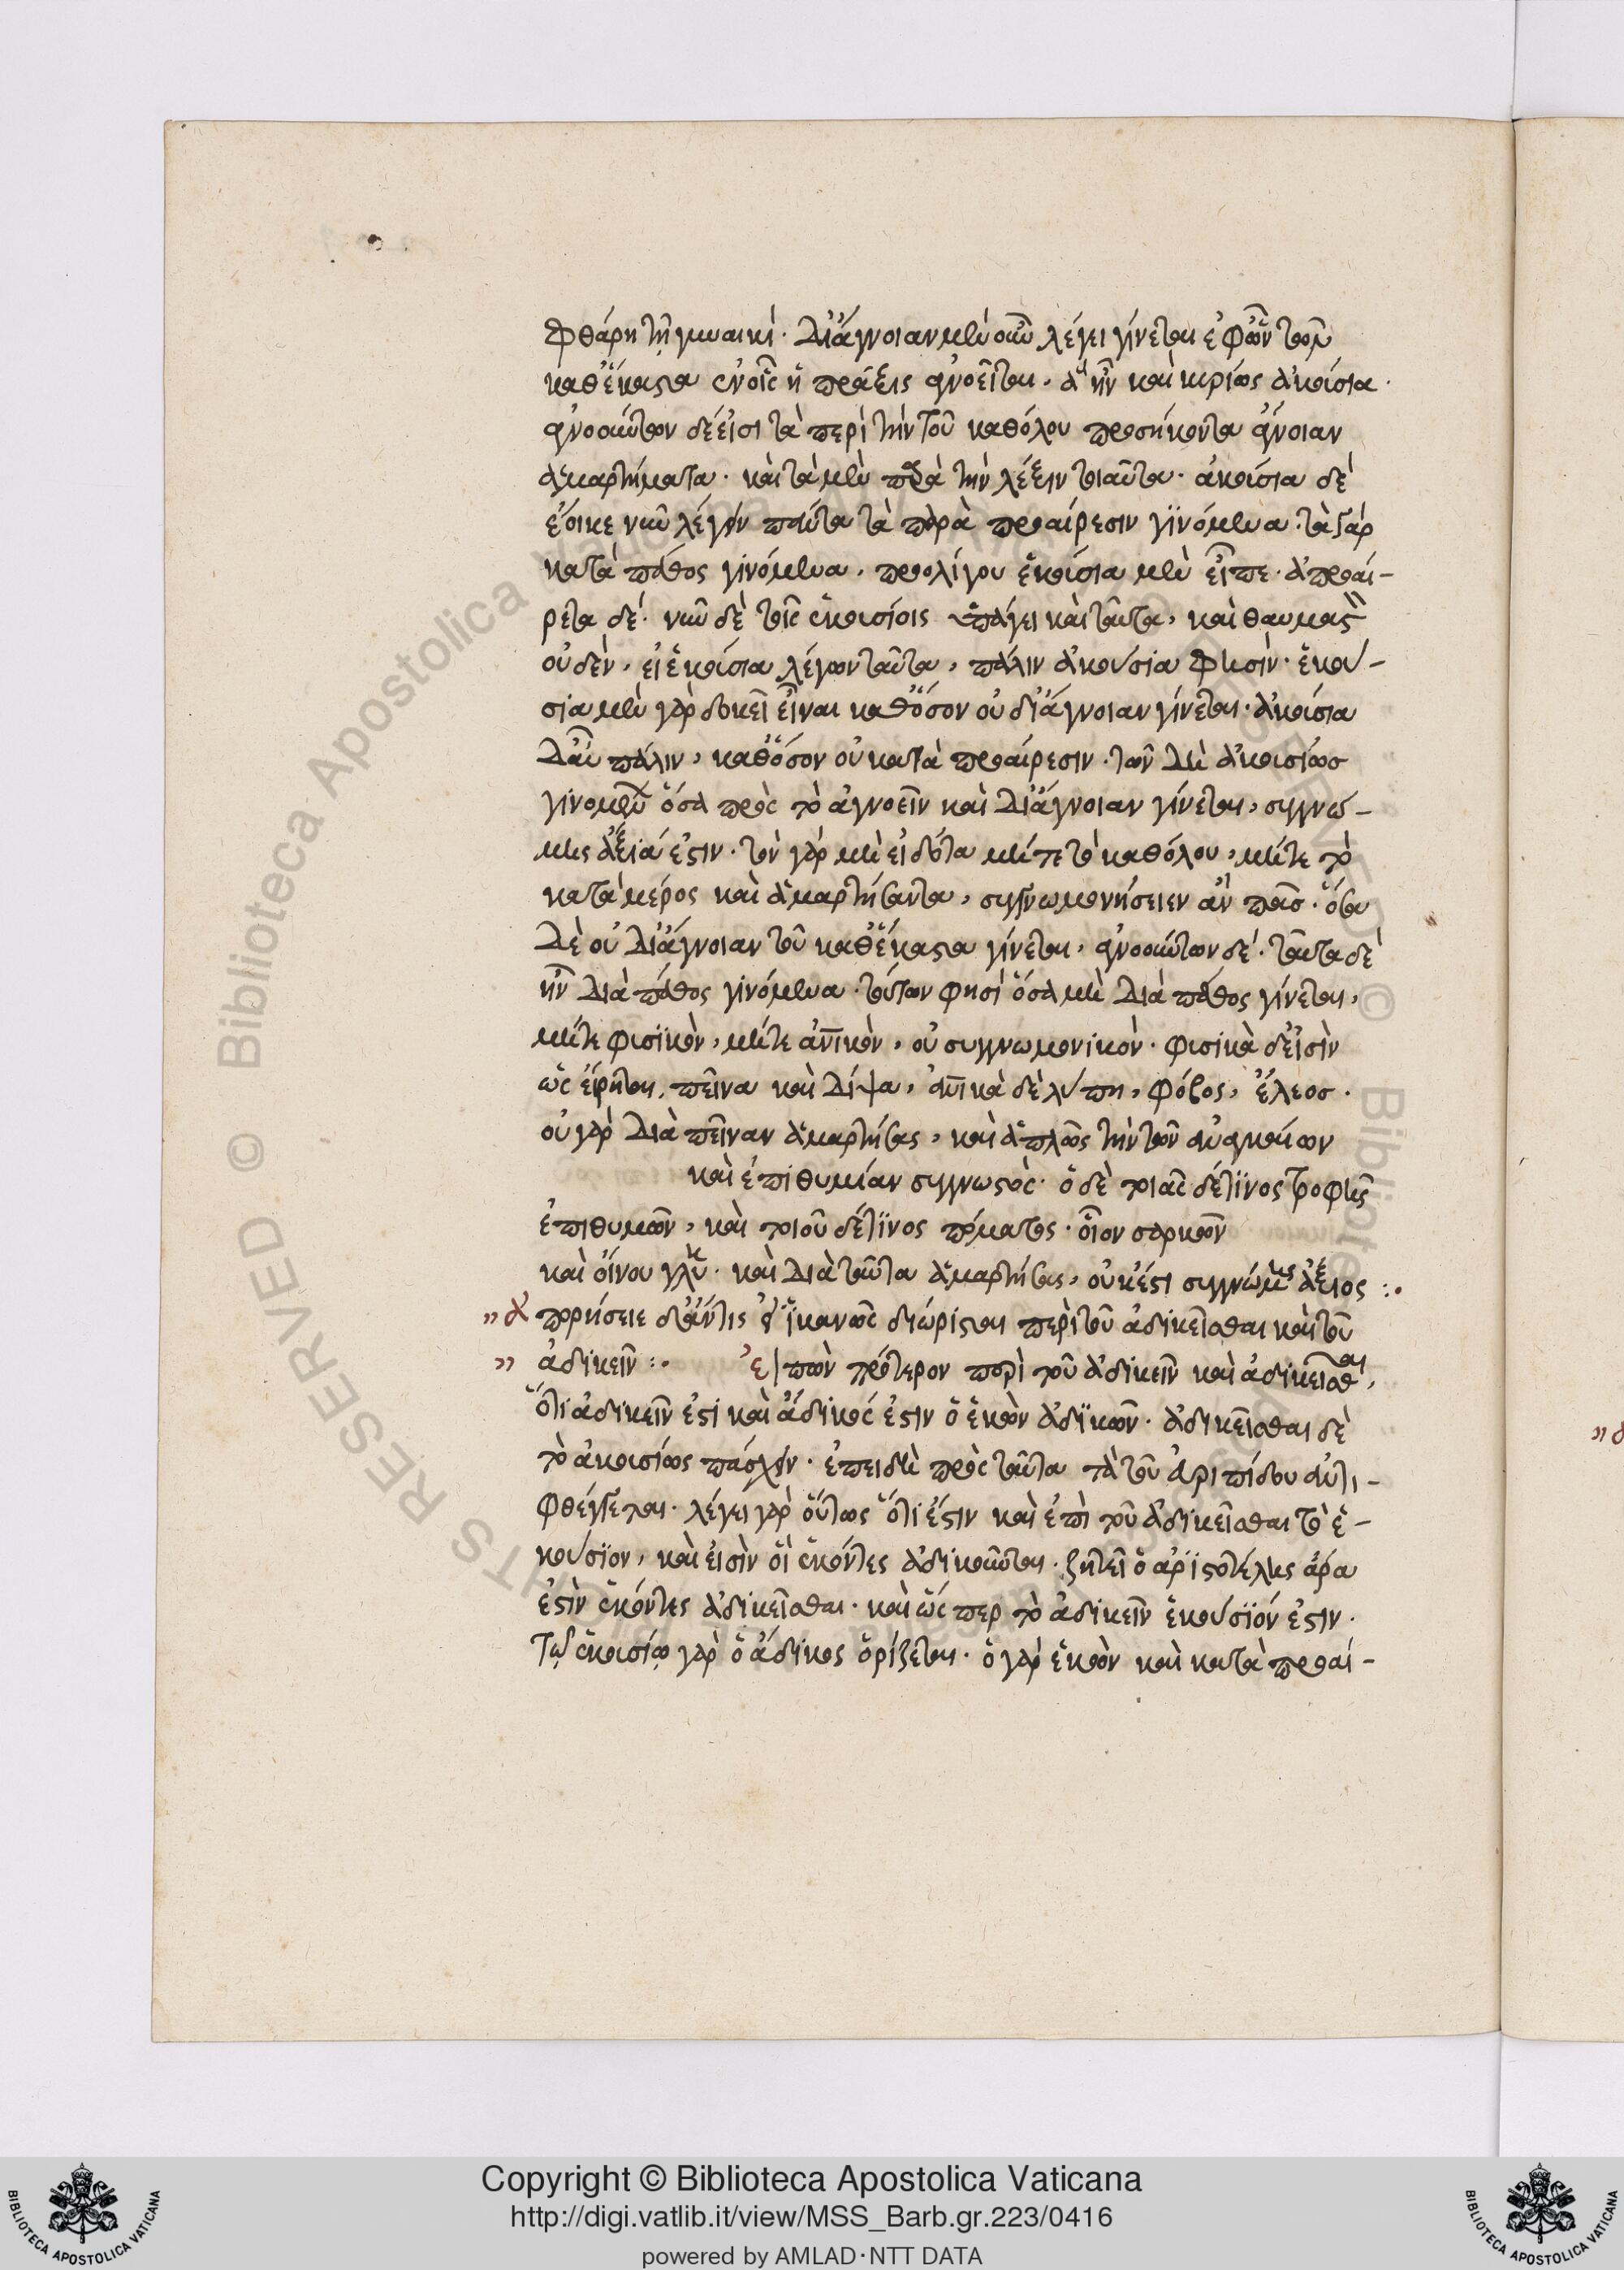 φθάρη τῇ γυναικί. δι' ἄγνοιαν μὲν οὖν λέγει γίνεται ἐφ' ὧν τῶν
καθ' ἕκαστα ἐν οἷς ἡ πρᾶξις ἀγνοεῖται, ἃ ἦν καὶ κυρίως ἀκούσια.
ἀγνοούντων δέ εἰσι τὰ περὶ τὴν τοῦ καθόλου προσήκοντα ἄγνοιαν
ἁμαρτήματα. καὶ τὰ μὲν παρὰ τὴν λέξιν τοιαῦτα. ἀκούσια δὲ
ἔοικε νῦν λέγειν πάντα τὰ παρὰ προαίρεσιν γινόμενα. τὰ γὰρ
κατὰ πάθος γινόμενα, πρὸ ὀλίγου ἑκούσια μὲν εἶπε. ἀπροαί-
ρετα δέ. νῦν δὲ τοῖς ἑκουσίοις ὑπάγει καὶ ταῦτα, καὶ θαυμαστὸν
οὐδὲν, εἰ ἑκούσια λέγων ταῦτα, πάλιν ἀκούσια φησίν. ἑκού-
σια μὲν γὰρ δοκεῖ εἶναι καθόσον οὐ δι' ἄγνοιαν γίνεται. ἀκούσια
δ' αὖ πάλιν, καθόσον οὐ κατὰ προαίρεσιν. τῶν δὲ ἀκουσίως
γινομένων ὅσα πρὸς τὸ ἀγνοεῖν καὶ δι' ἄγνοιαν γίνεται, συγγνώ-
μης ἄξιά ἐστιν. τὸν γὰρ μὴ εἰδότα μήτε τὸ καθόλου, μήτε τὸ
κατὰ μέρος καὶ ἁμαρτήσαντα, συγγνωμονήσειεν ἂν πᾶς. ὅσα
δὲ οὐ δι' ἄγνοιαν τοῦ καθ' ἕκαστα γίνεται, ἀγνοούντων δέ. ταῦτα δὲ
ἦν διὰ πάθος γινόμενα. τούτων φησὶ ὅσα μὴ διὰ πάθος γίνεται,
μήτε φυσικὸν, μήτε ἀνθρωπικὸν, οὐ συγγνωμονικόν. φυσικὰ δ' εἰσὶν
ὡς εἴρηται, πεῖνα καὶ δίψα, ἀνθρωπικὰ δὲ λύπη, φόβος, ἔλεος.
οὐ γὰρ διὰ πεῖναν ἁμαρτήσας, καὶ ἁπλῶς τὴν τῶν ἀναγκαίων
καὶ ἐπιθυμίαν συγγνωστός. ὁ δὲ ποιᾶς δέ τινος τροφῆς
ἐπιθυμῶν, καὶ ποιοῦ δέ τινος πόματος. οἷον σαρκῶν
καὶ οἴνου γλυκ. καὶ διὰ ταῦτα ἁμαρτήσας, οὐκ ἔστι συγγνώμης ἄξιος :.
„ ἀπορήσειε δ' ἄν τις εἰ ἱκανῶς διώρισται περὶ τοῦ ἀδικεῖσθαι καὶ τοῦ
„ ἀδικεῖν :. εἰπὼν πρότερον περὶ τοῦ ἀδικεῖν καὶ ἀδικεῖσθαι,
ὅτι ἀδικεῖν ἐστὶ καὶ ἄδικός ἐστιν ὁ ἑκὼν ἀδικῶν. ἀδικεῖσθαι δὲ
τὸ ἀκουσίως πάσχειν. ἐπειδὴ πρὸς ταῦτα τὰ τοῦ εὐριπίδου ἀντι-
φθέγγεται. λέγει γὰρ οὕτως ὅτι ἔστιν καὶ ἐπὶ τοῦ ἀδικεῖσθαι τὸ ἑ-
κούσιον, καὶ εἰσὶν οἳ ἑκόντες ἀδικοῦνται. ζητεῖ ὁ ἀριστοτέλης ἆρα
ἐστὶν ἑκόντες ἀδικεῖσθαι. καὶ ὥσπερ τὸ ἀδικεῖν ἑκούσιόν ἐστιν.
τῷ ἑκουσίῳ γὰρ ὁ ἄδικος ὁρίζεται. ὁ γὰρ ἑκὼν καὶ κατὰ προαί-
Copyright © Biblioteca Apostolica Vaticana
http://digi.vatlib.it/view/MSS_Barb.gr.223/0416
powered by AMLAD·NTT DATA